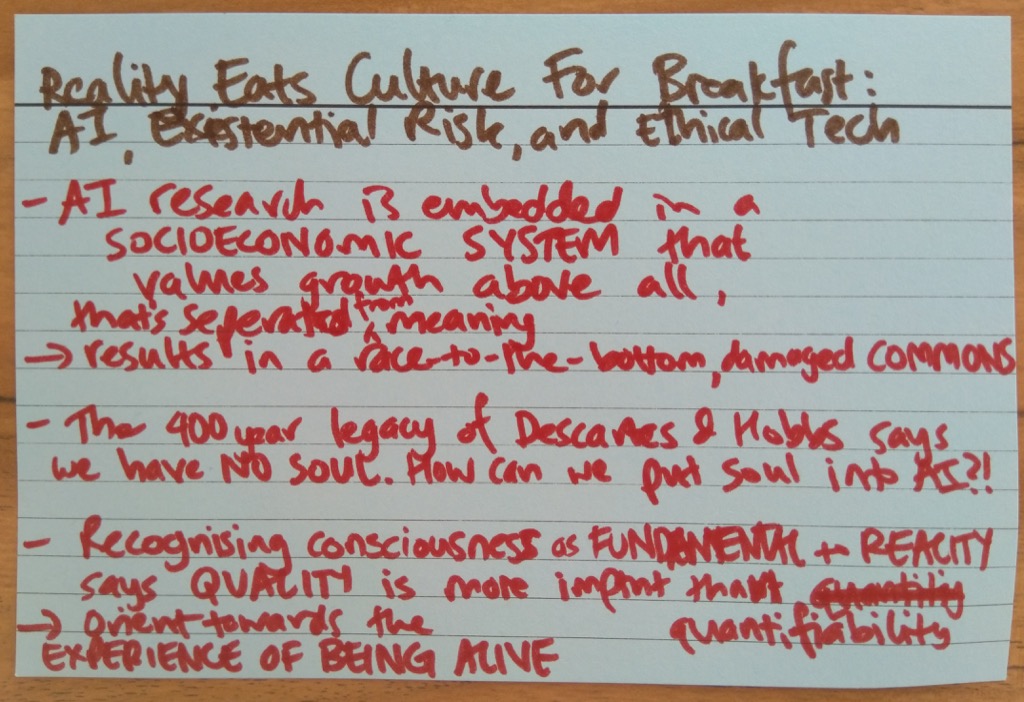 Reality Eats Culture For Breakfast:
AI, Existential Risk, and Ethical Tech
- AI research is embedded in a
SOCIOECONOMIC SYSTEM that
values growth above all,
that's seperated from meaning
→ results in a race-to-the-bottom, damaged COMMONS
- The 400 year legacy of Descartes & Hobbs says
we have NO SOUL. How can we put soul into AI?!
- Recognising consciousness as FUNDAMENTAL to REALITY
says QUALITY is more impint than quantity
→ orient towards the quantifiability
EXPERIENCE OF BEING ALIVE